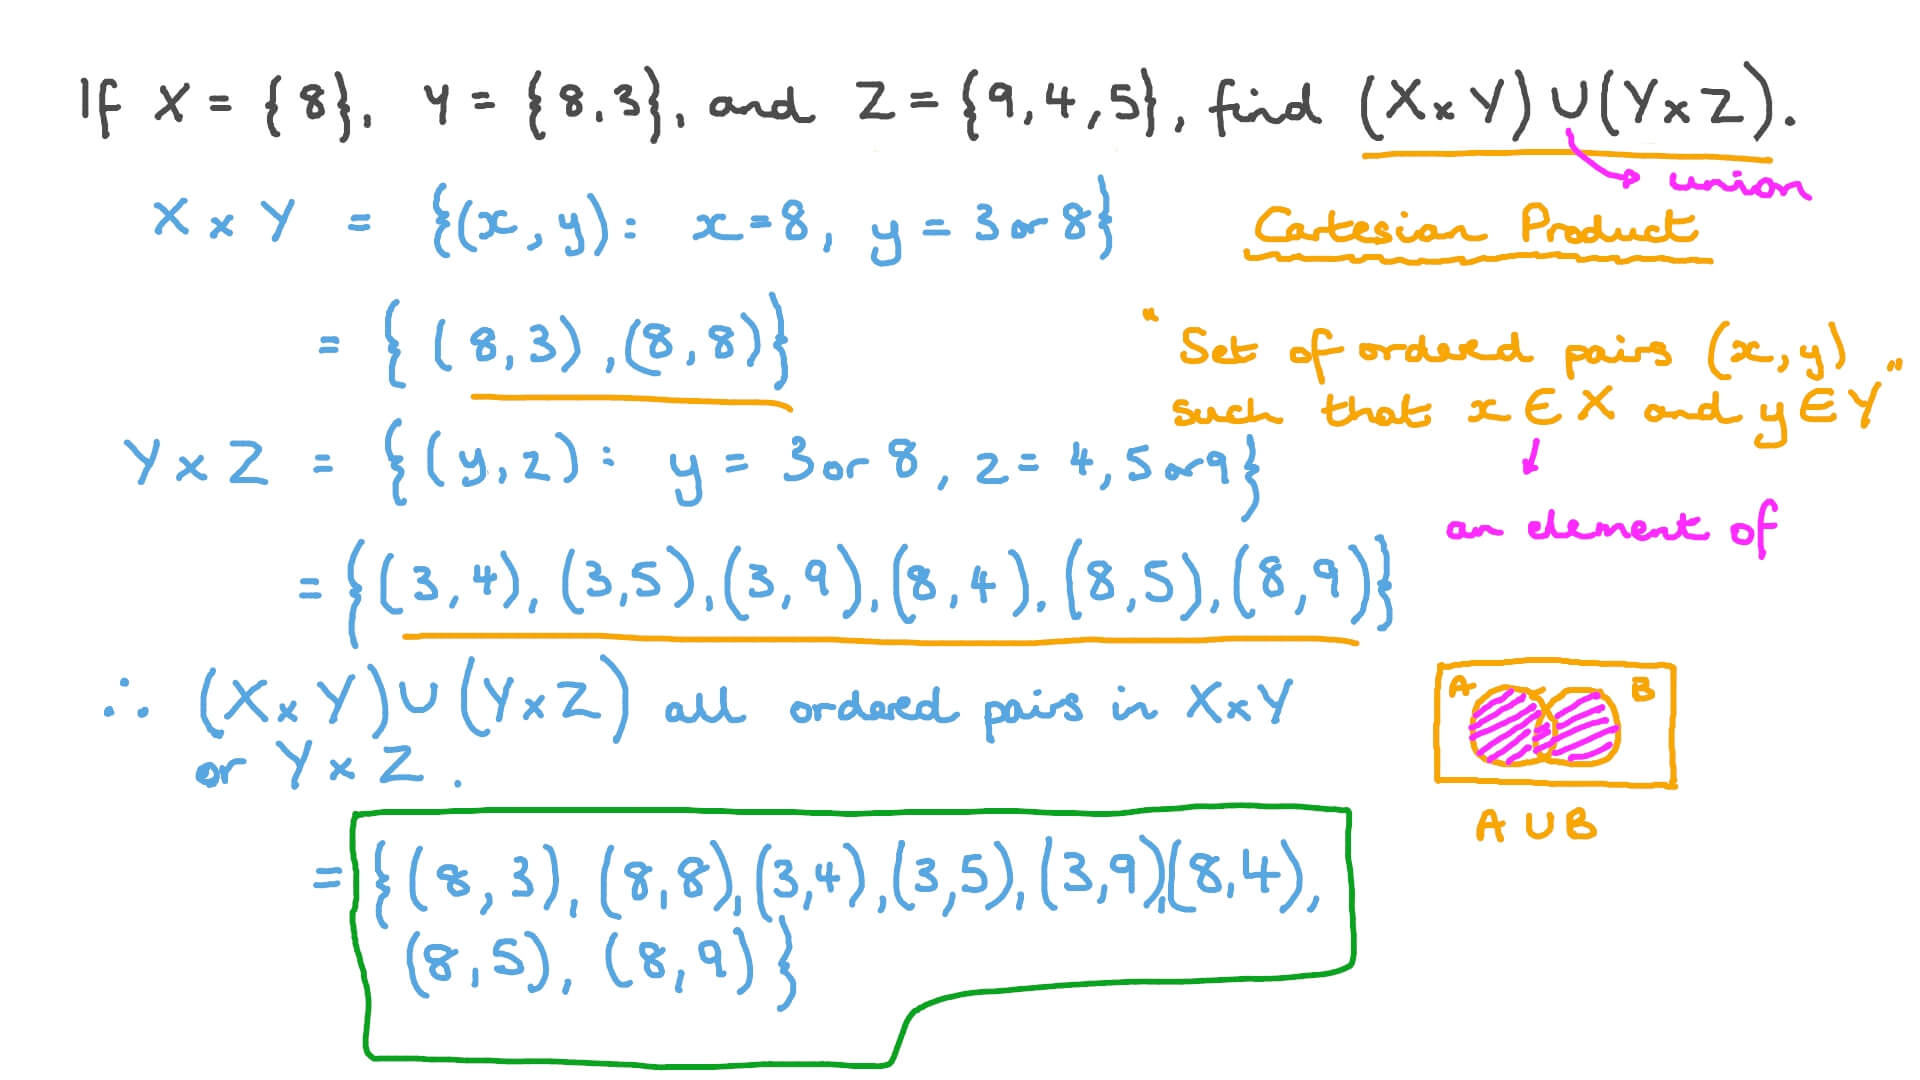 If X = {8}, Y = {8,3}, and Z = {9,4,5}, find (X×Y)∪(Y×Z).
union
X×Y = {(x,y): x=8, y = 3 or 8}
Cartesian Product
= {(8,3),(8,8)}
"Set of ordered pairs (x,y)
such that x∈X and y∈Y"
Y×Z = {(y,z): y = 3 or 8, z = 4,5 or 9}
an element of
= {(3,4),(3,5),(3,9),(8,4),(8,5),(8,9)}
∴ (X×Y)∪(Y×Z) all ordered pairs in X×Y
or Y×Z.
A B
A∪B
= {(8,3),(8,8),(3,4),(3,5),(3,9),(8,4),
(8,5),(8,9)}